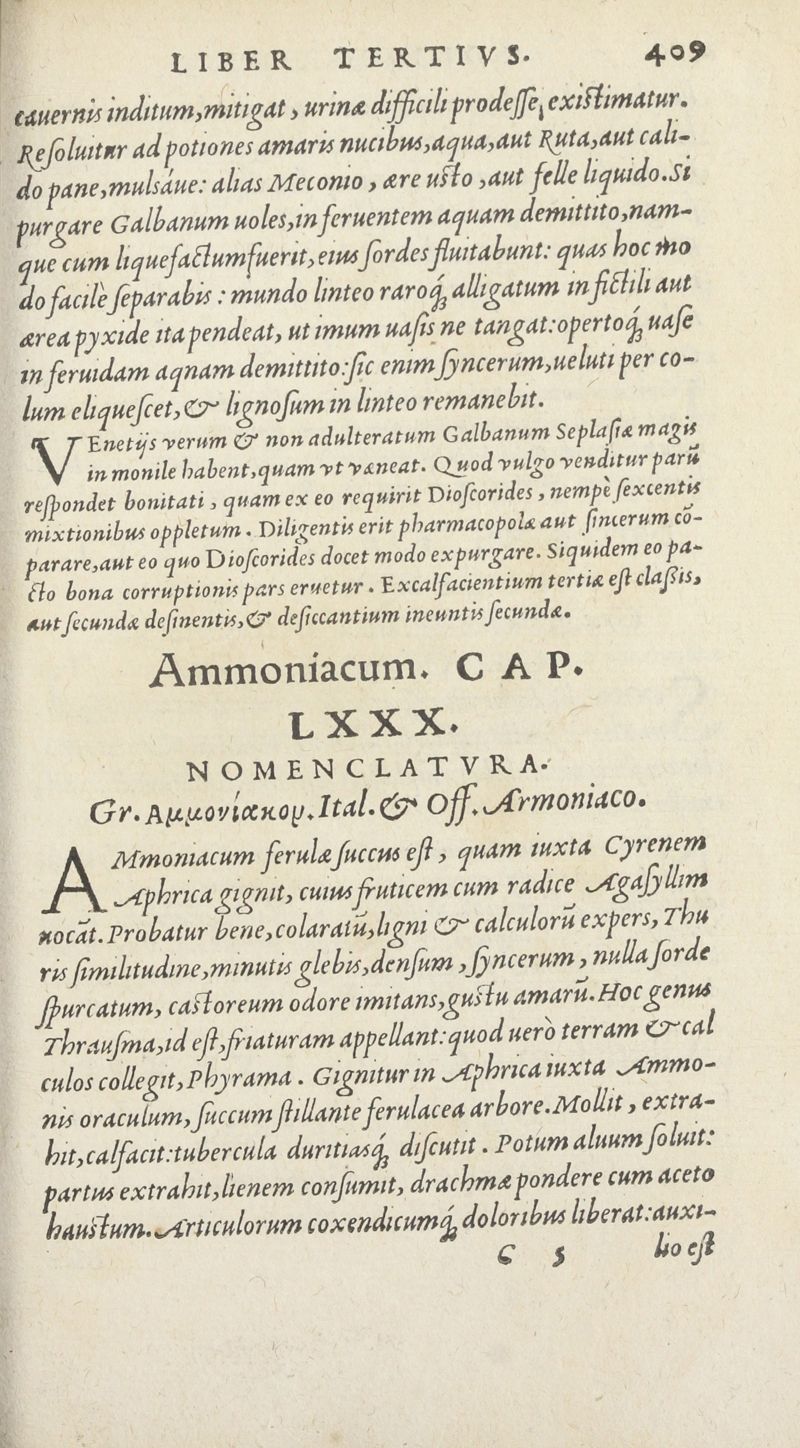 LIBER TERTIVS. 409
cauernis inditum,mitigat, urinæ difficili prodesse, existimatur.
Resoluitur ad potiones amaris nucibus,aqua,aut Ruta,aut cali-
do pane,mulsáue: alias Meconio, ære usto,aut felle liquido.Si
purgare Galbanum uoles,in feruentem aquam demittito,nam-
que cum liquefactum fuerit,eius sordes fluitabunt: quas hoc mo
do facilè separabis: mundo linteo raroq́; alligatum in fictili aut
ærea pyxide ita pendeat, ut imum uasis ne tangat:opertoq́; uase
in feruidam aqnam demittito:sic enim syncerum,ueluti per co-
lum eliquescet,& lignosum in linteo remanebit.
VEnetijs verum & non adulteratum Galbanum Seplasiæ magis
in monile habent,quam vt væneat. Quod vulgo venditur parũ
respondet bonitati, quam ex eo requirit Dioscorides, nempe sexcentis
mixtionibus oppletum. Diligentis erit pharmacopolæ aut sincerum cō-
parare,aut eo quo Dioscorides docet modo expurgare. Siquidem eo pa-
cto bona corruptionis pars eruetur. Excalfacientium tertiæ est classis,
aut secundæ desinentis,& desiccantium ineuntis secundæ.
Ammoniacum. CAP.
LXXX.
NOMENCLATVRA.
Gr. Αμμονίακον. Ital. & Off. Armoniaco.
AMmoniacum ferulæ succus est, quam iuxta Cyrenem
Aphrica gignit, cuius fruticem cum radice Agasyllim
uocãt. Probatur bene,colaratũ,ligni & calculorũ expers, Thu
ris similitudine,minutis glebis,densum, syncerum, nulla sorde
spurcatum, castoreum odore imitans,gustu amarũ. Hoc genus
Thrausma,id est,friaturam appellant:quod uerò terram & cal
culos collegit,Phyrama. Gignitur in Aphrica iuxta Ammo-
nis oraculum, succum stillante ferulacea arbore. Mollit, extra-
hit,calfacit:tubercula duritiasq́; discutit. Potum aluum soluit:
partus extrahit,lienem consumit, drachmæ pondere cum aceto
haustum. Articulorum coxendicumq́; doloribus liberat:auxi-
C 5 lio est